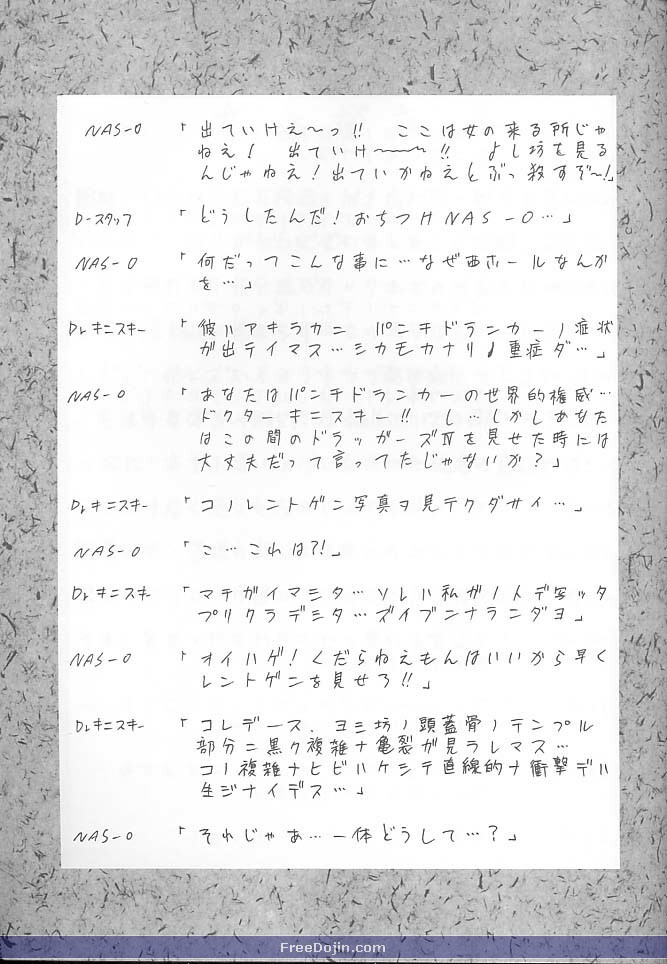 NAS-0 「出ていけえ〜っ!! ここは女の来る所じゃ
ねえ! 出ていけ〜〜〜!! よし坊を見る
んじゃねえ!出ていかねえとぶっ殺すぞ〜!」
D-スタッフ 「どうしたんだ!おちつけNAS-0…」
NAS-0 「何だってこんな事に…なぜ西ホールなんか
を…」
Dr.キニスキー 「彼ハアキラカニ パンチドランカーノ症状
が出テイマス…シカモカナリノ重症ダ…」
NAS-0 「あなたはパンチドランカーの世界的権威…
ドクターキニスキー!! し…しかしあなた
はこの間のドラッガーズⅣを見せた時には
大丈夫だって言ってたじゃないか?」
Dr.キニスキー 「コノレントゲン写真ヲ見テクダサイ…」
NAS-0 「こ…これは?!」
Dr.キニスキー 「マチガイマシタ…ソレハ私ガ1人デ写ッタ
プリクラデシタ…ズイブンナランダヨ」
NAS-0 「オイハゲ!くだらねえもんはいいから早く
レントゲンを見せろ!!」
Dr.キニスキー 「コレデース.ヨシ坊ノ頭蓋骨ノテンプル
部分ニ黒ク複雑ナ亀裂が見ラレマス…
コノ複雑ナヒビハケシテ直線的ナ衝撃デハ
生ジナイデス…」
NAS-0 「それじゃあ…一体どうして…?」
FreeDojin.com